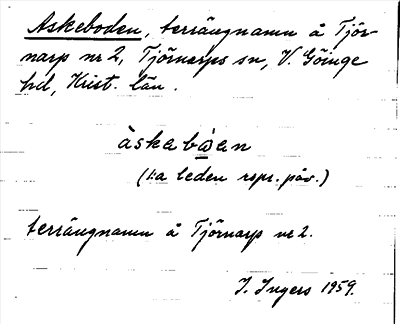 Askeboden, terrängnamn å Tjör-
narp nr 2, Tjörnarps sn, V. Göinge
hd, Krist. län.
àskabòan
(1:a leden repr. påv.)
terrängnamn å Tjörnarp nr 2.
I. Ingers 1959.